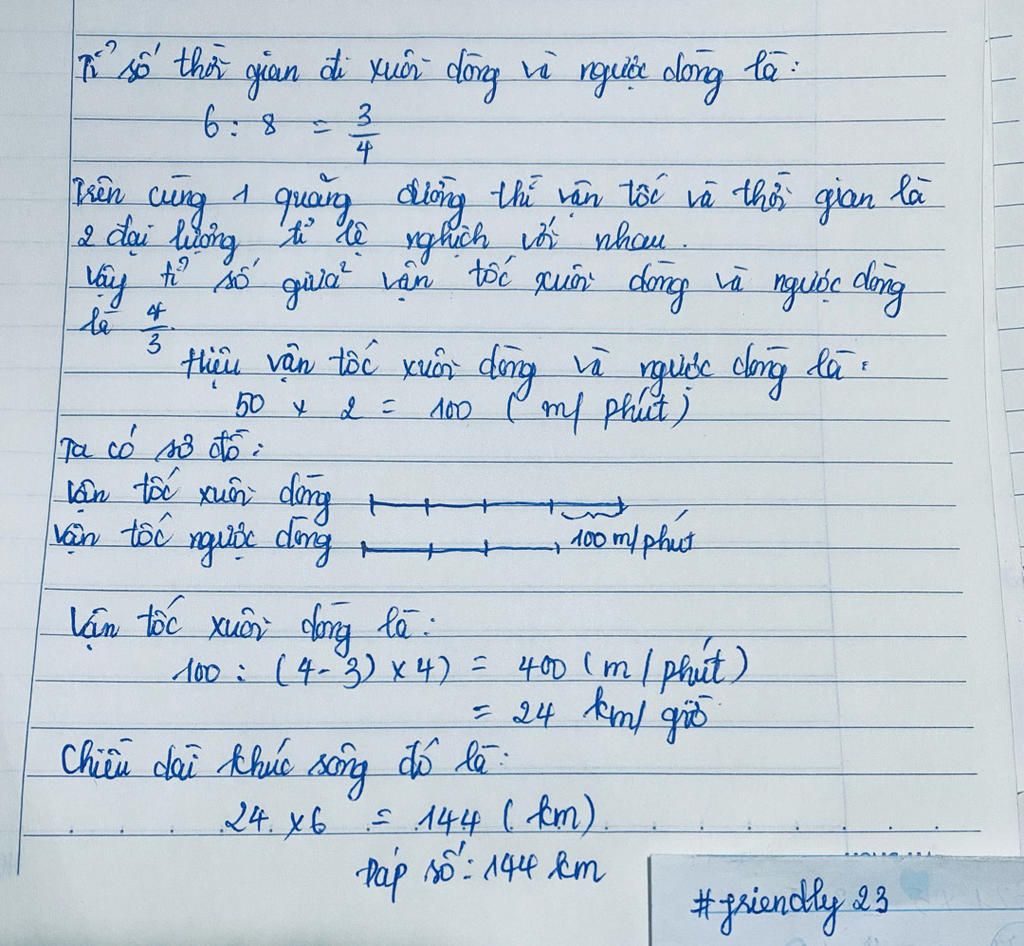 Tỉ số thời gian đi xuôi dòng và ngược dòng là:
6 : 8 = 3/4
Trên cùng 1 quãng đường thì vận tốc và thời gian là
2 đại lượng tỉ lệ nghịch với nhau.
Vậy tỉ số giữa 2 vận tốc xuôi dòng và ngược dòng
là 4/3.
Hiệu vận tốc xuôi dòng và ngược dòng là:
50 x 2 = 100 (m/phút)
Ta có sơ đồ:
Vận tốc xuôi dòng
Vận tốc ngược dòng 100 m/phút
Vận tốc xuôi dòng là:
100 : (4-3) x 4) = 400 (m/phút)
= 24 km/giờ
Chiều dài khúc sông đó là:
24 x 6 = 144 (km)
Đáp số: 144 km
#friendly 23